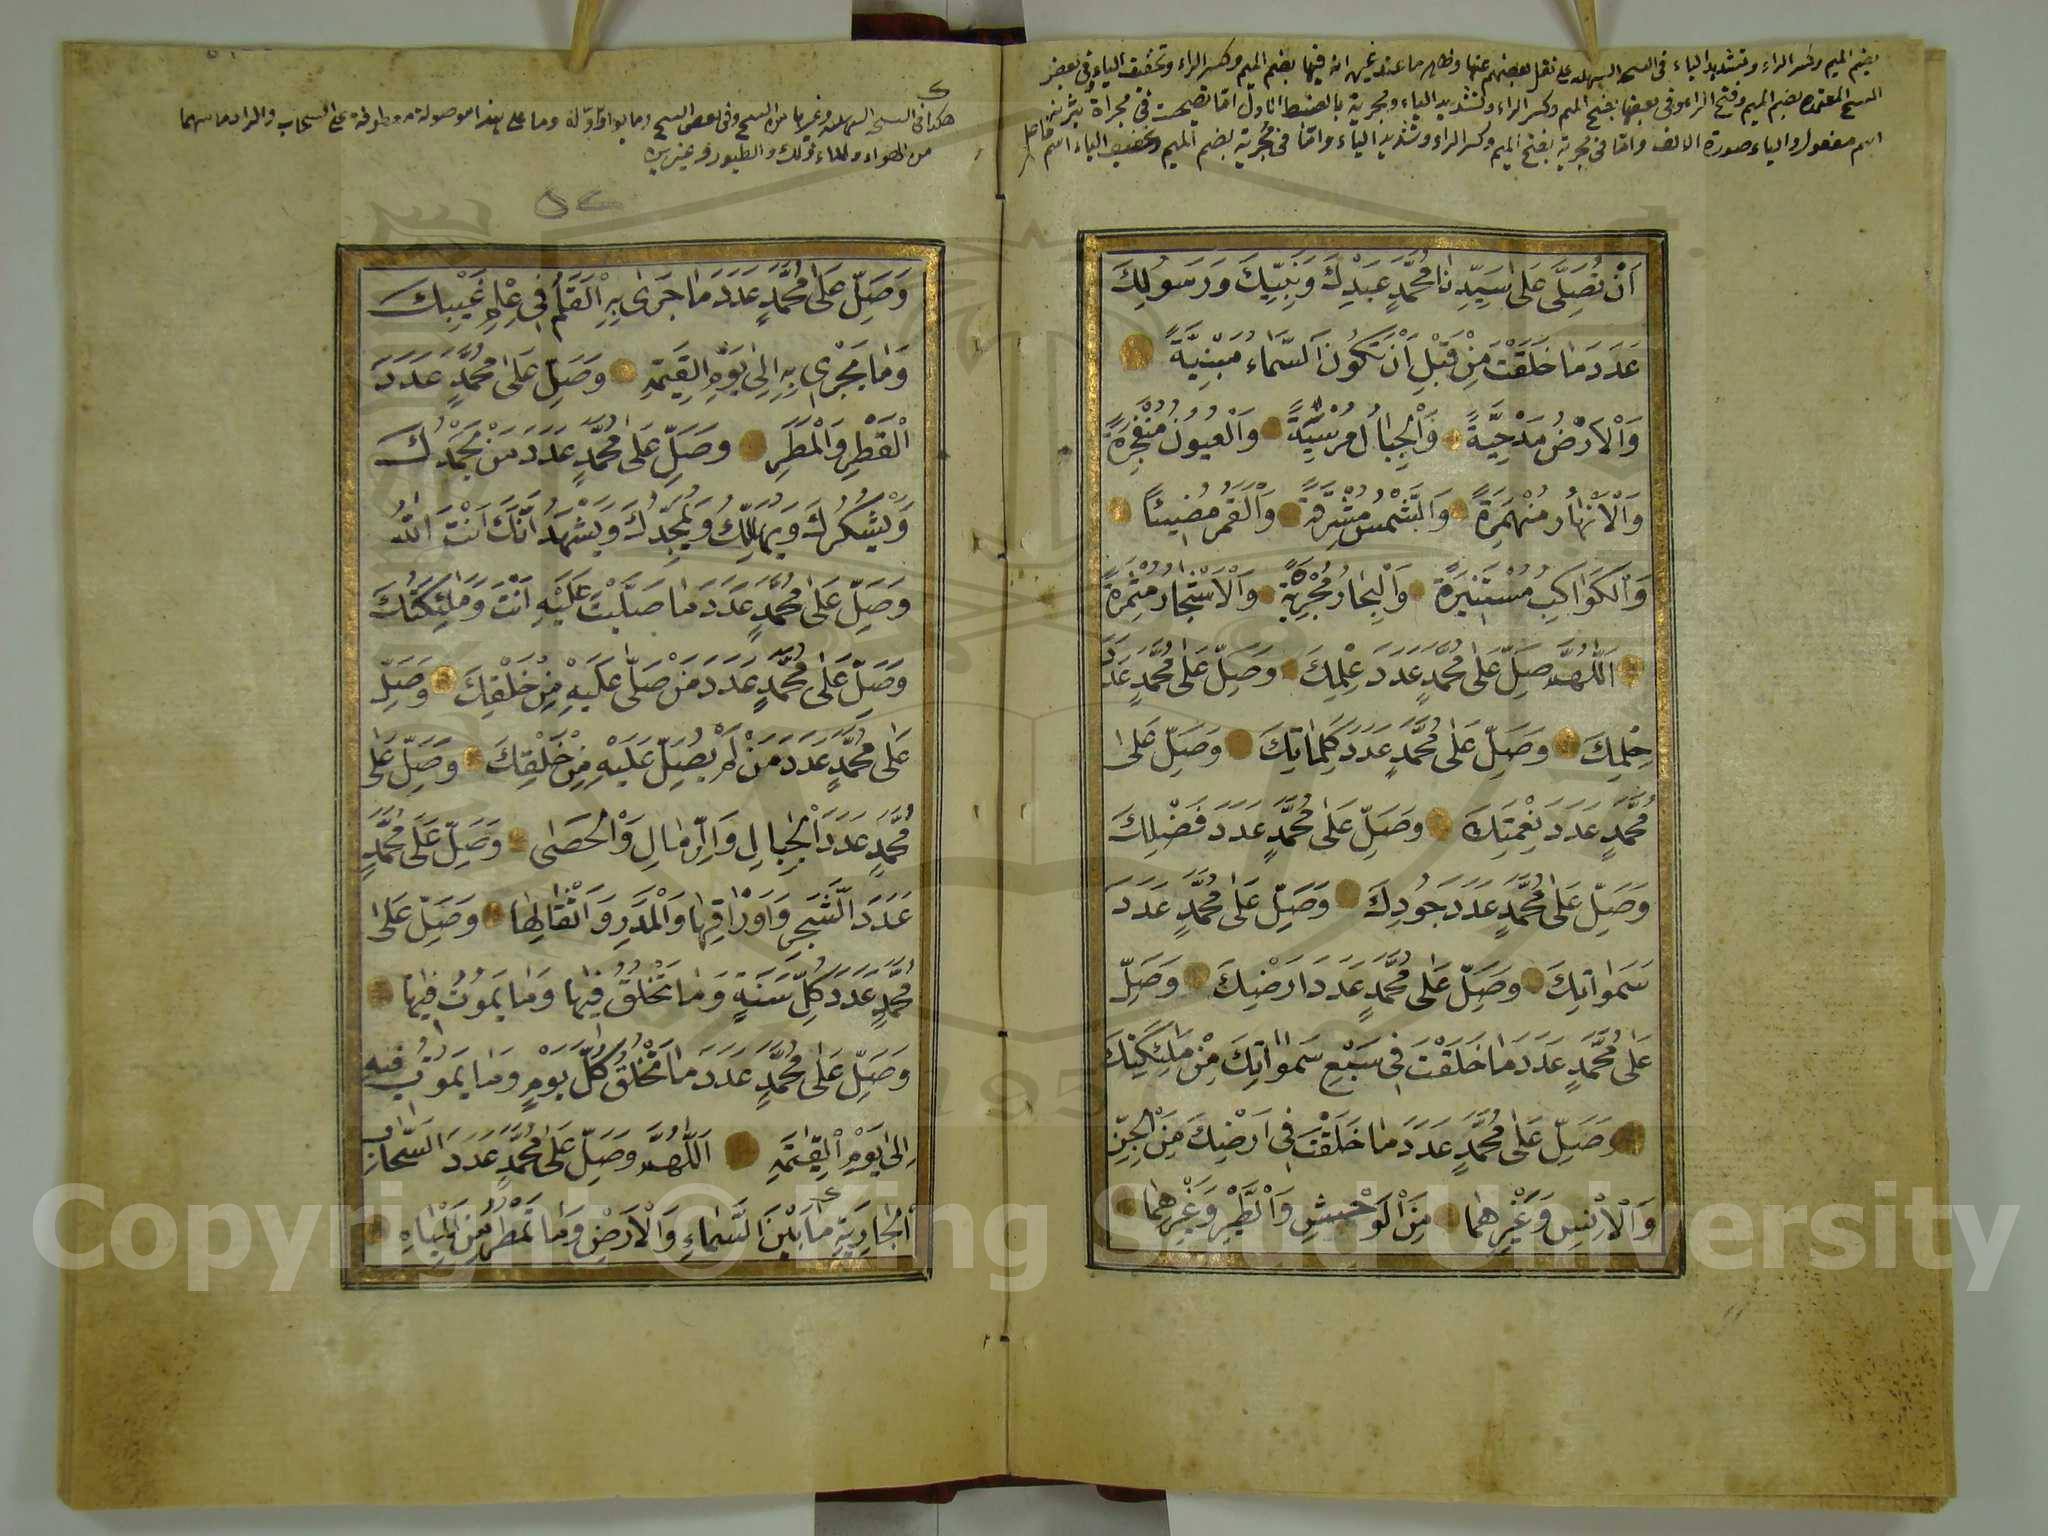 بضم الميم وكسر الراء وتشديد الياء في النسخة السهلية على نقل بعضهم عنها وظاهر ما عند غيره انه فيها بضم الميم وكسر الراء وتخفيف الياء وفي بعض
النسخ المعتمدة بضم الميم وفتح الراء وفي بعضها بفتح الميم وكسر الراء وتشديد الياء ومجرية بالضبط الاول انما تصحت في مجراة
اسم مفعول والياء صورة الالف وامّا في مجريّة بفتح الميم وكسر الراء وتشديد الياء وامّا في مُجرية بضم الميم وتخفيف الياء اسم فاعل
اَنْ تُصَلِّىَ عَلٰى سَيِّدِنَا مُحَمَّدٍ عَبْدِكَ وَنَبِيِّكَ وَرَسُولِكَ
عَدَدَ مَا خَلَقْتَ مِنْ قَبْلِ اَنْ تَكُونَ السَّمَاءُ مَبْنِيَّةً
وَالْاَرْضُ مَدْحِيَّةً وَالْجِبَالُ مُرْسِيَّةً وَالْعُيُونُ مُنْفَجِرَةً
وَالْاَنْهَارُ مُنْهَمِرَةً وَالشَّمْسُ مُشْرِقَةً وَالْقَمَرُ مُضِيئًا
وَالْكَوَاكِبُ مُسْتَنِيرَةً وَالْبِحَارُ مُجْرِيَةً وَالْاَشْجَارُ مُثْمِرَةً
اَللّٰهُمَّ صَلِّ عَلٰى مُحَمَّدٍ عَدَدَ عِلْمِكَ وَصَلِّ عَلٰى مُحَمَّدٍ عَدَدَ
حِلْمِكَ وَصَلِّ عَلٰى مُحَمَّدٍ عَدَدَ كَلِمَاتِكَ وَصَلِّ عَلٰى
مُحَمَّدٍ عَدَدَ نِعْمَتِكَ وَصَلِّ عَلٰى مُحَمَّدٍ عَدَدَ فَضْلِكَ
وَصَلِّ عَلٰى مُحَمَّدٍ عَدَدَ جُودِكَ وَصَلِّ عَلٰى مُحَمَّدٍ عَدَدَ
سَمٰوَاتِكَ وَصَلِّ عَلٰى مُحَمَّدٍ عَدَدَ اَرْضِكَ وَصَلِّ
عَلٰى مُحَمَّدٍ عَدَدَ مَا خَلَقْتَ فِى سَبْعِ سَمٰوَاتِكَ مِنْ مَلٰئِكَتِكَ
وَصَلِّ عَلٰى مُحَمَّدٍ عَدَدَ مَا خَلَقْتَ فِى اَرْضِكَ مِنَ الْجِنِّ
وَالْاِنْسِ وَغَيْرِهِمَا مِنَ الْوَحْشِ وَالطَّيْرِ وَغَيْرِهِمَا
هكذا في النسخة السهلية وغيرها من النسخ وفي بعض النسخ وما بواو اوّله وما على هذا موصولة معطوفة على السحاب والمراد ما بينهما
من الهواء والماء وذلك والطيور وغير
٥٢
وَصَلِّ عَلٰى مُحَمَّدٍ عَدَدَ مَا جَرٰى بِهِ الْقَلَمُ فِى عِلْمِ غَيْبِكَ
وَمَا يَجْرِى بِهِ اِلٰى يَوْمِ الْقِيٰمَةِ وَصَلِّ عَلٰى مُحَمَّدٍ عَدَدَ
الْقَطْرِ وَالْمَطَرِ وَصَلِّ عَلٰى مُحَمَّدٍ عَدَدَ مَنْ يَحْمَدُكَ
وَيَشْكُرُكَ وَيُهَلِّلُكَ وَيُمَجِّدُكَ وَيَشْهَدُ اَنَّكَ اَنْتَ اللّٰهُ
وَصَلِّ عَلٰى مُحَمَّدٍ عَدَدَ مَا صَلَّيْتَ عَلَيْهِ اَنْتَ وَمَلٰئِكَتُكَ
وَصَلِّ عَلٰى مُحَمَّدٍ عَدَدَ مَنْ صَلّٰى عَلَيْهِ مِنْ خَلْقِكَ وَصَلِّ
عَلٰى مُحَمَّدٍ عَدَدَ مَنْ لَمْ يُصَلِّ عَلَيْهِ مِنْ خَلْقِكَ وَصَلِّ عَلٰى
مُحَمَّدٍ عَدَدَ الْجِبَالِ وَالرِّمَالِ وَالْحَصٰى وَصَلِّ عَلٰى مُحَمَّدٍ
عَدَدَ الشَّجَرِ وَاَوْرَاقِهَا وَالْمَدَرِ وَاَثْقَالِهَا وَصَلِّ عَلٰى
مُحَمَّدٍ عَدَدَ كُلِّ سَنَةٍ وَمَا تَخْلُقُ فِيهَا وَمَا يَمُوتُ فِيهَا
وَصَلِّ عَلٰى مُحَمَّدٍ عَدَدَ مَا تَخْلُقُ كُلَّ يَوْمٍ وَمَا يَمُوتُ فِيهِ
اِلٰى يَوْمِ الْقِيٰمَةِ اَللّٰهُمَّ وَصَلِّ عَلٰى مُحَمَّدٍ عَدَدَ السَّحَابِ
الْجَارِيَةِ مَا بَيْنَ السَّمَاءِ وَالْاَرْضِ وَمَا تَمْطُرُ مِنَ الْمِيَاهِ
Copyright © King Saud University
1957